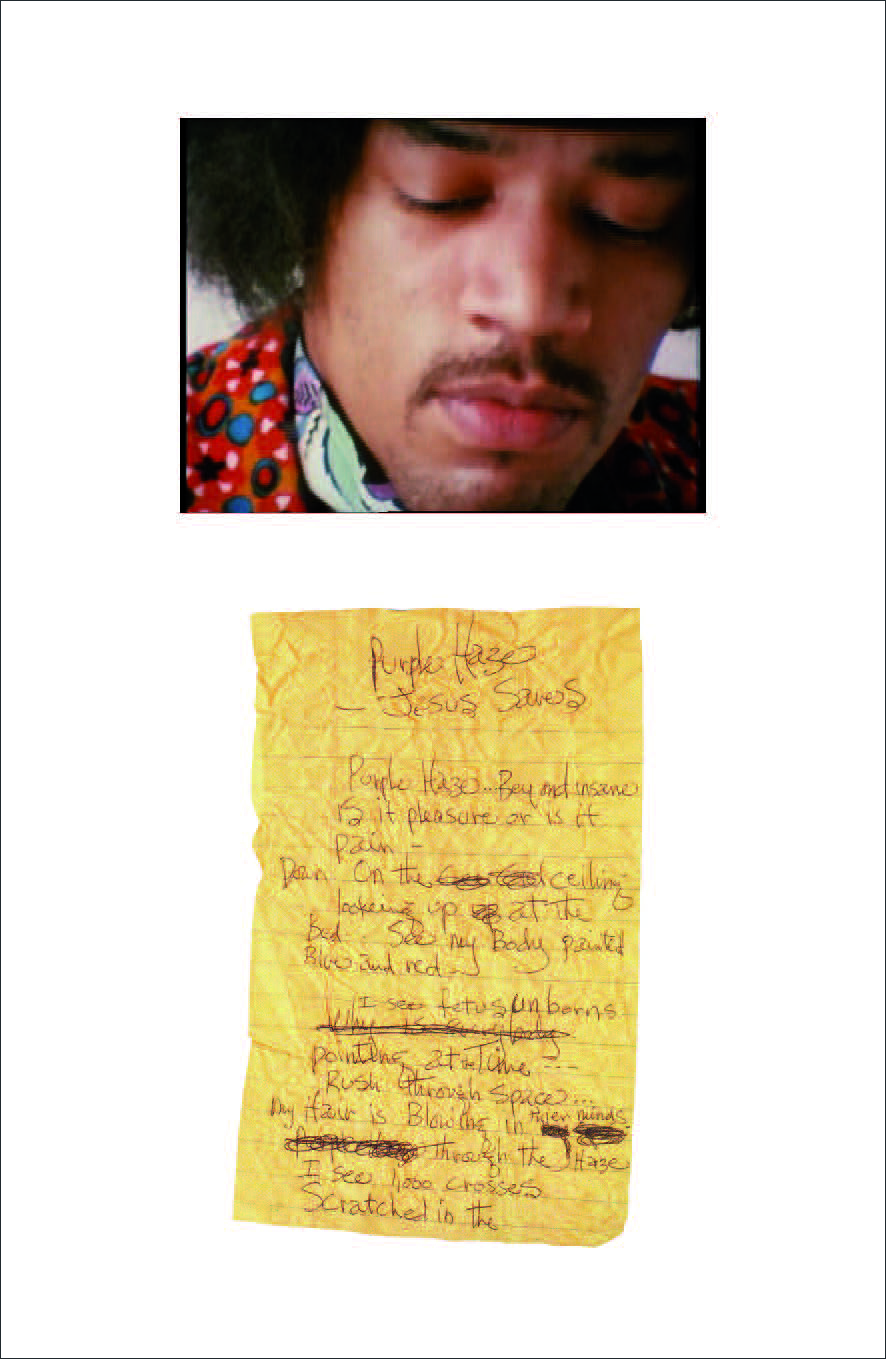 Purple Haze
- Jesus Saves
Purple Haze... Beyond insane
is it pleasure or is it
pain -
Down On the ceiling
looking up at the
Bed. See my Body painted
Blue and red -
I see fetus unborns
Why is everybody
pointing at Time ---
Rush through Space...
my Hair is Blowing in minds
through the Haze
I see 1,000 crosses
Scratched in the